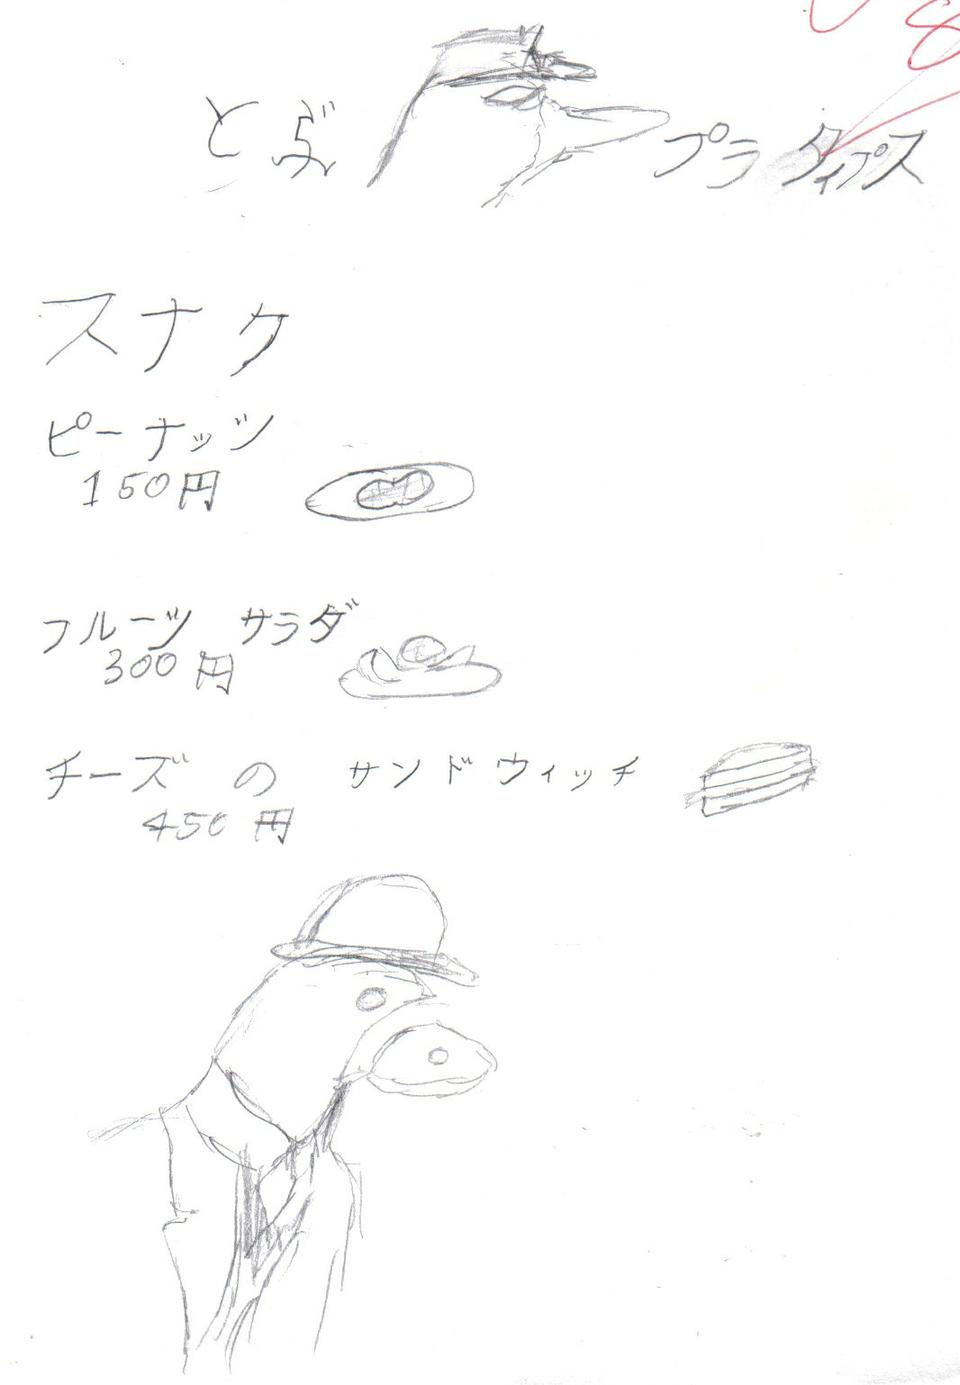 とぶ プラタイプス
スナク
ピーナッツ
150円
フルーツ サラダ
300円
チーズ の サンドウィッチ
450円